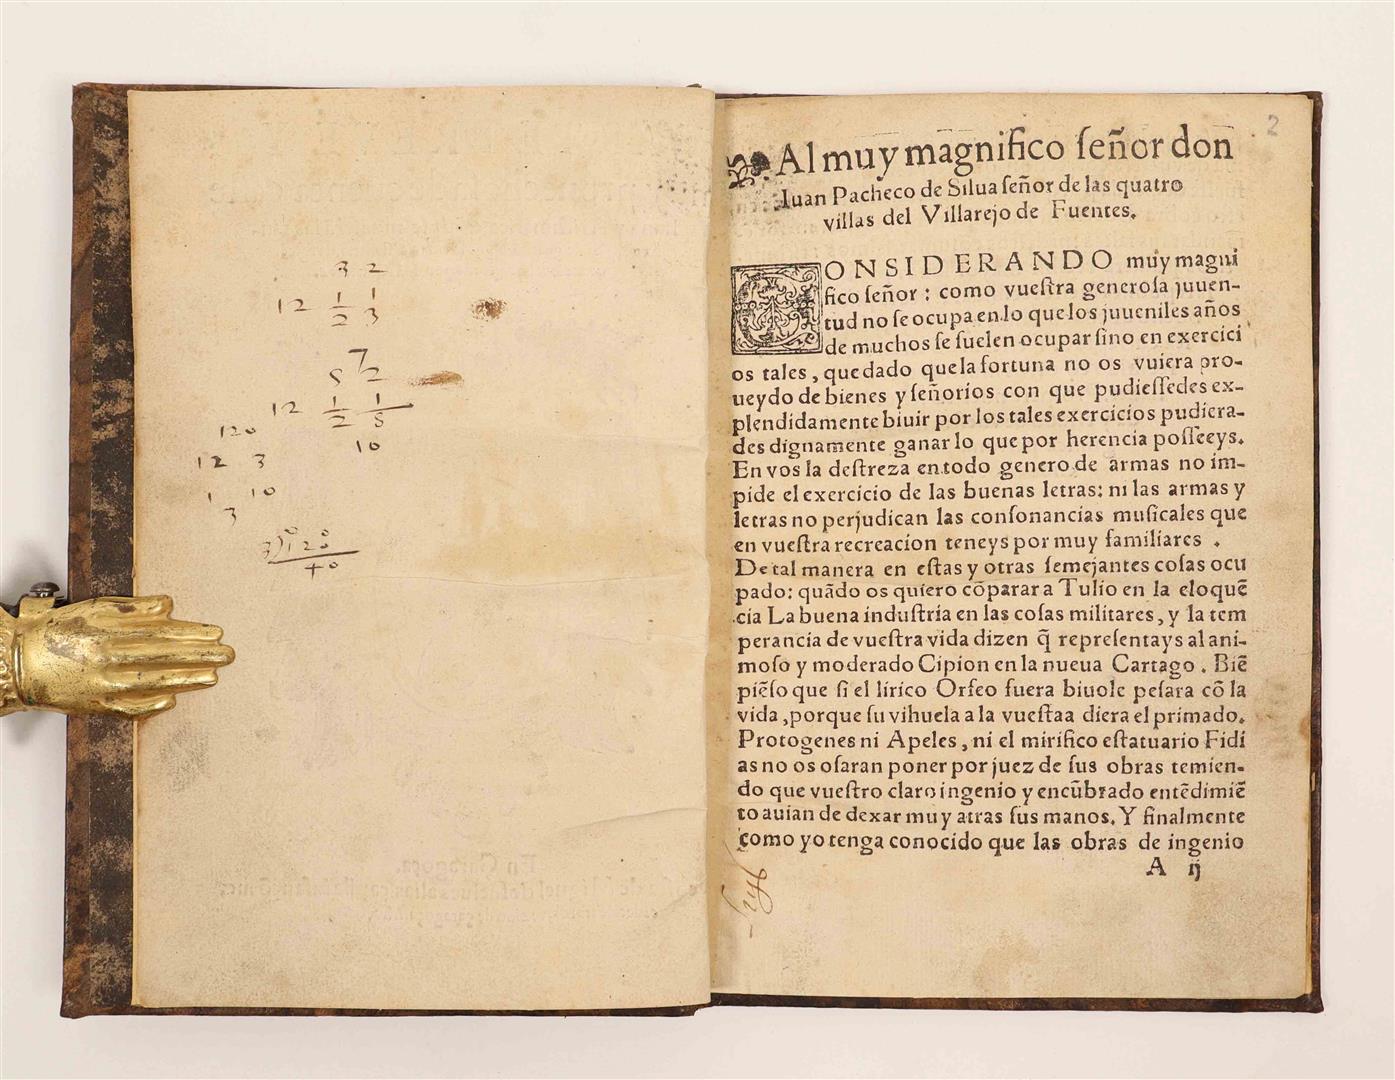 3 2
12 1/2 1/3
7
5 2
12 1/2 1/5
120
10
12 3
1 10
3
3)120
40
2
Al muy magnifico ſeñor don
Iuan Pacheco de Silua ſeñor de las quatro
villas del Villarejo de Fuentes.
CONSIDERANDO muy magni
fico ſeñor : como vueſtra generoſa juuen-
tud no ſe ocupa en lo que los juueniles años
de muchos ſe ſuelen ocupar ſino en exercici
os tales, que dado que la fortuna no os vuiera pro-
ueydo de bienes y ſeñoríos con que pudieſſedes ex-
plendidamente biuir por los tales exercicios pudiera-
des dignamente ganar lo que por herencia poſſeeys.
En vos la deſtreza en todo genero de armas no im-
pide el exercicio de las buenas letras: ni las armas y
letras no perjudican las conſonancias muſicales que
en vueſtra recreacion teneys por muy familiares .
De tal manera en eſtas y otras ſemejantes coſas ocu
pado: quãdo os quiero cõparar a Tulio en la eloquẽ
cia La buena induſtria en las coſas militares, y la tem
perancia de vueſtra vida dizen q̃ repreſentays al ani-
moſo y moderado Cipion en la nueua Cartago . Biẽ
piẽſo que ſi el lirico Orfeo fuera biuo le peſara cõ la
vida, porque ſu vihuela a la vueſtaa diera el primado.
Protogenes ni Apeles, ni el mirifico eſtatuario Fidi
as no os oſaran poner por juez de ſus obras temien-
do que vueſtro claro ingenio y encũbrado entẽdimiẽ
to auian de dexar muy atras ſus manos. Y finalmente
como yo tenga conocido que las obras de ingenio
A ij